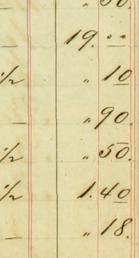 „ 50.
— 19. ..
½ „ 10
— „ 90.
½ „ 50.
½ 1.40
— „ 18.